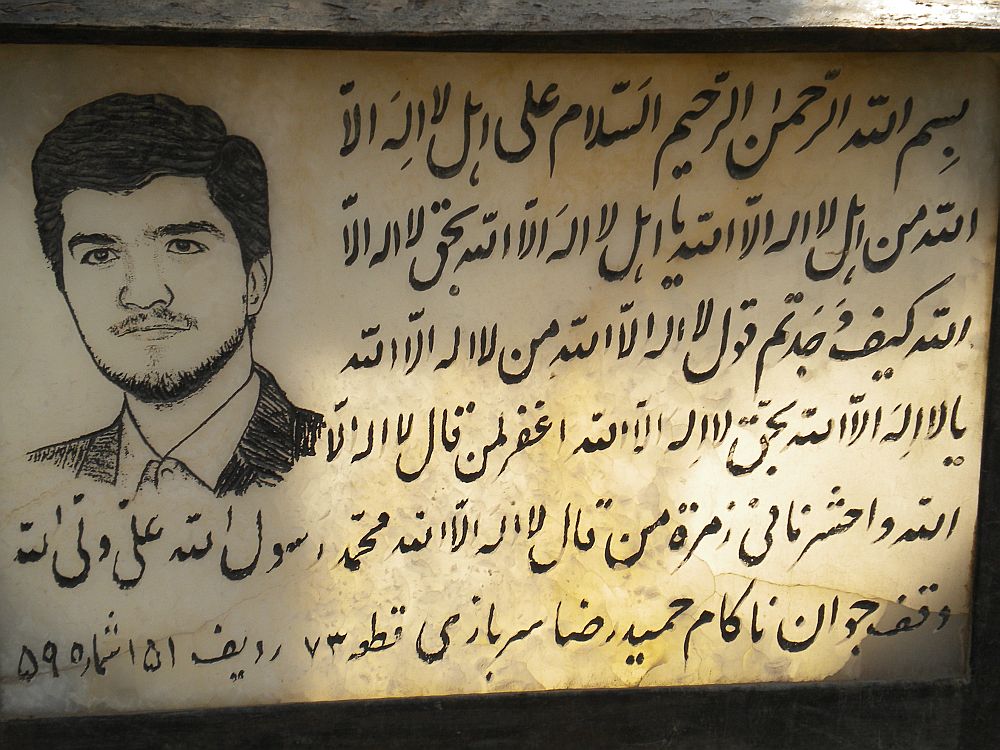 بِسم الله الرّحمٰن الرّحیم السّلام علی اهل لا اِلهَ الاّ
الله من اهل لا اله الاّ الله یا اهل لا الهَ الاّ الله بحق لا اله الاّ
الله کیف وَجَدتم قول لا اله الاّ الله من لا اله الاّ الله
یا لا اِلهَ الاّ الله بحقّ لا اِله الاّ الله اغفر لمن قال لا اله الاّ
الله و احشرنا فی زمرة من قال لا اله الاّ الله محمّد رسول الله علی ولی الله
وقف جوان ناکام حمید رضا سربازی قطعه ۷۳ ردیف ۱۵۱ شماره ۵۹